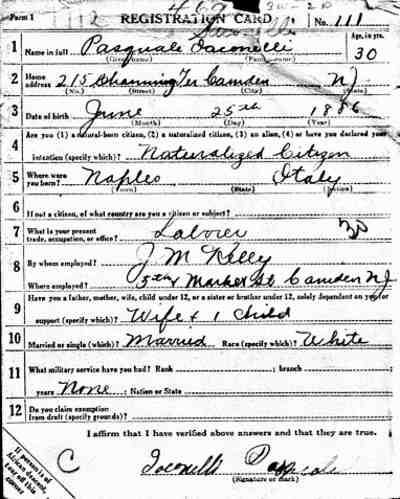 Form 1 REGISTRATION CARD No. 111
1 Name in full Pasquale Iaconelli Age, in yrs. 30
(Given name) (Family name)
2 Home address 215 Channing Ter Camden NJ
(No.) (Street) (City) (State)
3 Date of birth June 25th 1886
(Month) (Day) (Year)
4 Are you (1) a natural-born citizen, (2) a naturalized citizen, (3) an alien, (4) or have you declared your
intention (specify which)? Naturalized Citizen
5 Where were you born? Naples Italy
(Town) (State) (Nation)
6 If not a citizen, of what country are you a citizen or subject?
7 What is your present trade, occupation, or office? Laborer 30
8 By whom employed? J. M. Kelly
Where employed? 5th & Market St Camden NJ
9 Have you a father, mother, wife, child under 12, or a sister or brother under 12, solely dependent on you for
support (specify which)? Wife + 1 child
10 Married or single (which)? Married Race (specify which)? White
11 What military service have you had? Rank ; branch
years None ; Nation or State
12 Do you claim exemption from draft (specify grounds)?
I affirm that I have verified above answers and that they are true.
C Iaconelli Pasquale
(Signature or mark)
If person is of
African descent,
tear off this
corner